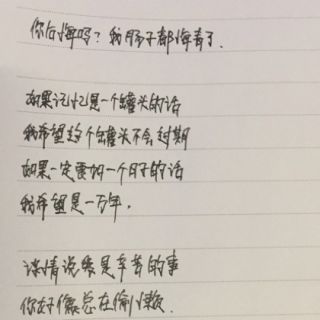 你后悔吗？我肠子都悔青了.
如果记忆是一个罐头的话
我希望这个罐头不会过期
如果一定要加一个日子的话
我希望是一万年.
谈情说爱是辛苦的事
你好像总在偷小懒.